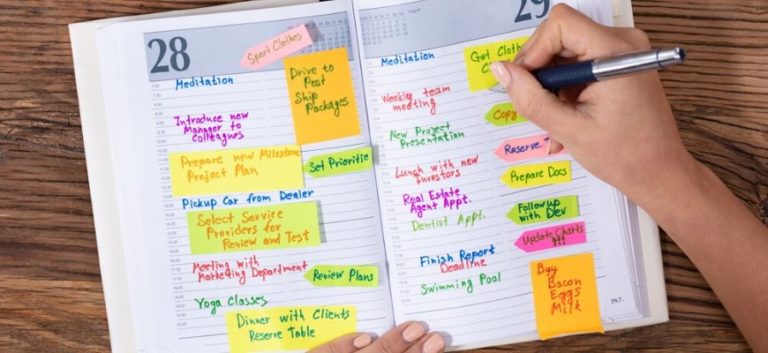 28
Sport Clothes
Meditation
Drive to
Post
Ship
Packages
Introduce new
Manager to
Colleagues
Prepare new Milestone
Project Plan
Set Prioritie
Pickup Car from Dealer
Select Service
Providers for
Review and Test
Meeting with
Marketing Department
Review Plans
Yoga Classes
Dinner with Clients
Reserve Table
August
29
Meditation
Get Clothe
Weekly team
meeting
Copy
New Project
Presentation
Reserve
Lunch with new
Investors
Prepare Docs
Real Estate
Agent Appt.
Follow up
with Dev
Dentist Appt.
Update Charts
!!!
Finish Report
Deadline
Swimming Pool
Buy
Bacon
Eggs
Milk